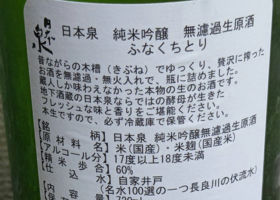 日本泉
日本泉 純米吟醸 無濾過生原酒
ふなくちとり
昔ながらの木槽(きぶね)でゆっくり、贅沢に搾った
お酒を無濾過・無火入れで、瓶に詰めました。
蔵人しか味わえなかった本物の生のお酒です。
地下酒蔵の日本泉ならではの酵母が生きた
フレッシュな味と香りをご堪能ください。
本生ですので、必ず冷蔵庫で保管ください。
銘柄 日本泉 純米吟醸無濾過生原酒
原材料名 米(国産)・米麹(国産米)
アルコール分 17度以上18度未満
精米歩合 60%
仕込水 自家井戸
(名水100選の一つ長良川の伏流水)